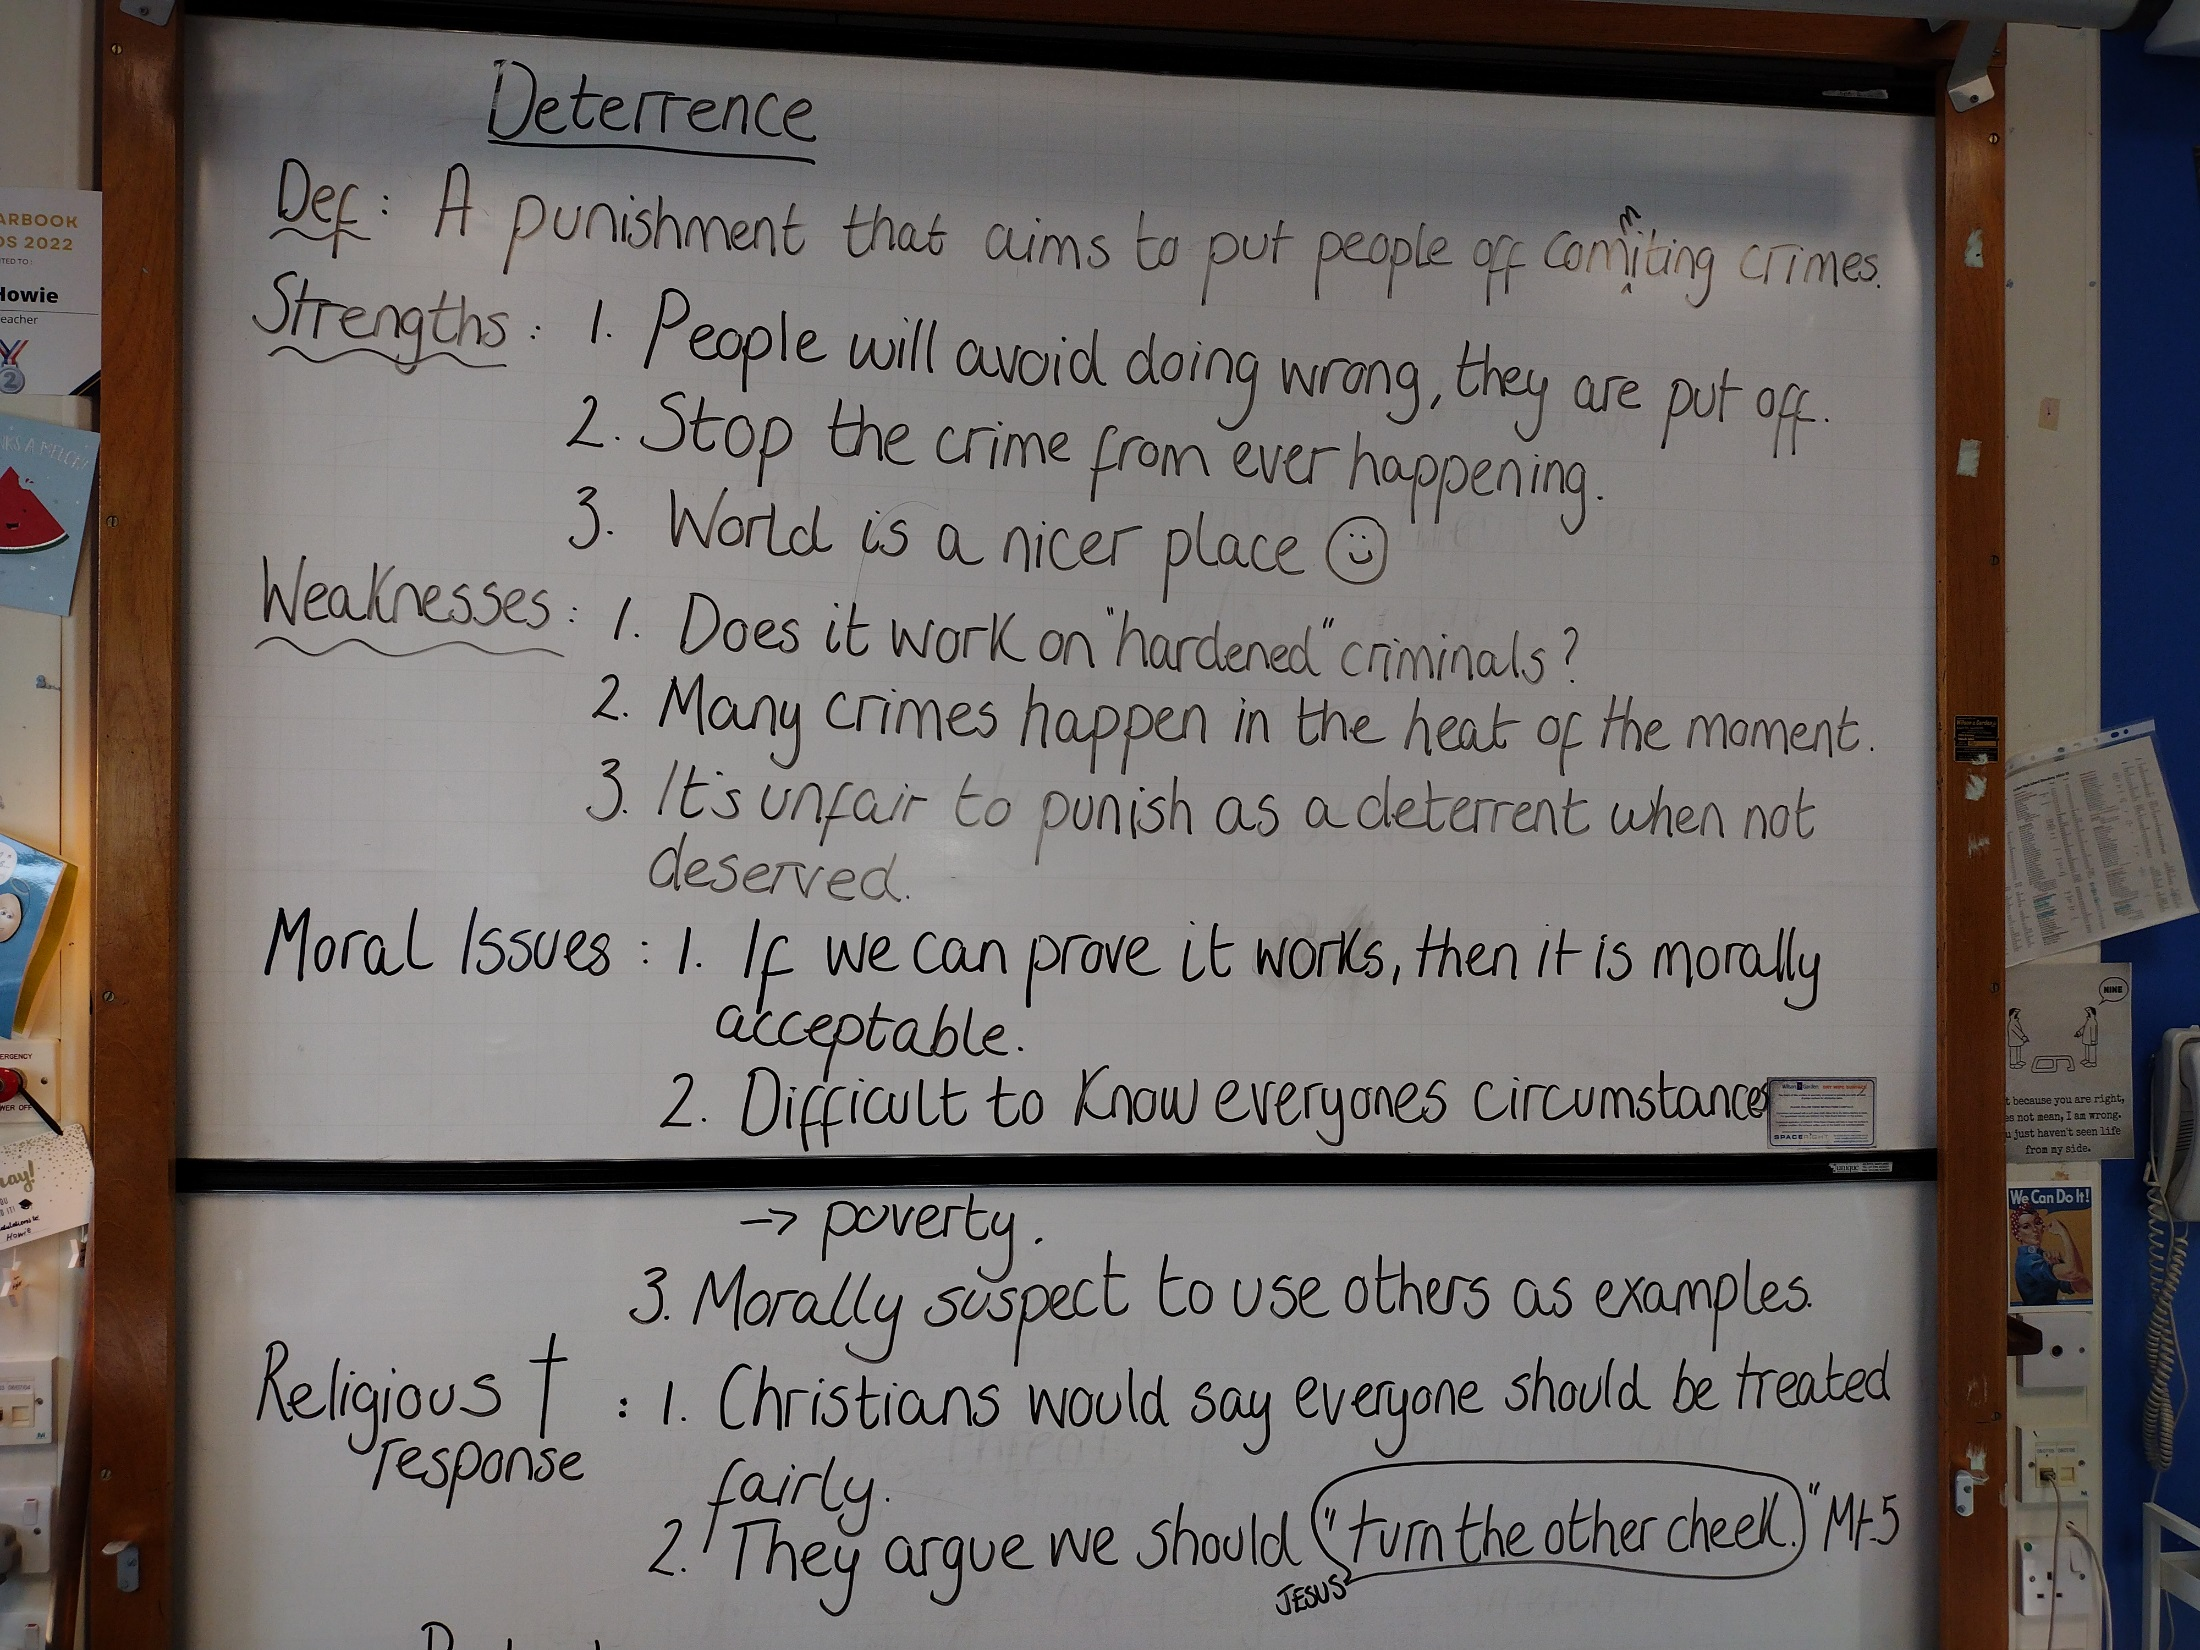 Deterrence
Def: A punishment that aims to put people off commiting crimes.
Strengths: 1. People will avoid doing wrong, they are put off.
2. Stop the crime from ever happening.
3. World is a nicer place
Weaknesses: 1. Does it work on "hardened" criminals?
2. Many crimes happen in the heat of the moment.
3. It's unfair to punish as a deterrent when not
deserved.
Moral Issues: 1. If we can prove it works, then it is morally
acceptable.
2. Difficult to know everyones circumstances
→ poverty.
3. Morally suspect to use others as examples.
Religious † : 1. Christians would say everyone should be treated
response
fairly.
2. They argue we should "turn the other cheek." Mt.5
JESUS
ARBOOK
DS 2022
Howie
eacher
2
ERGENCY
WER OFF
ay!
Howie
SPACERIGHT
unique
NINE
t because you are right,
es not mean, I am wrong.
u just haven't seen life
from my side.
We Can Do It!